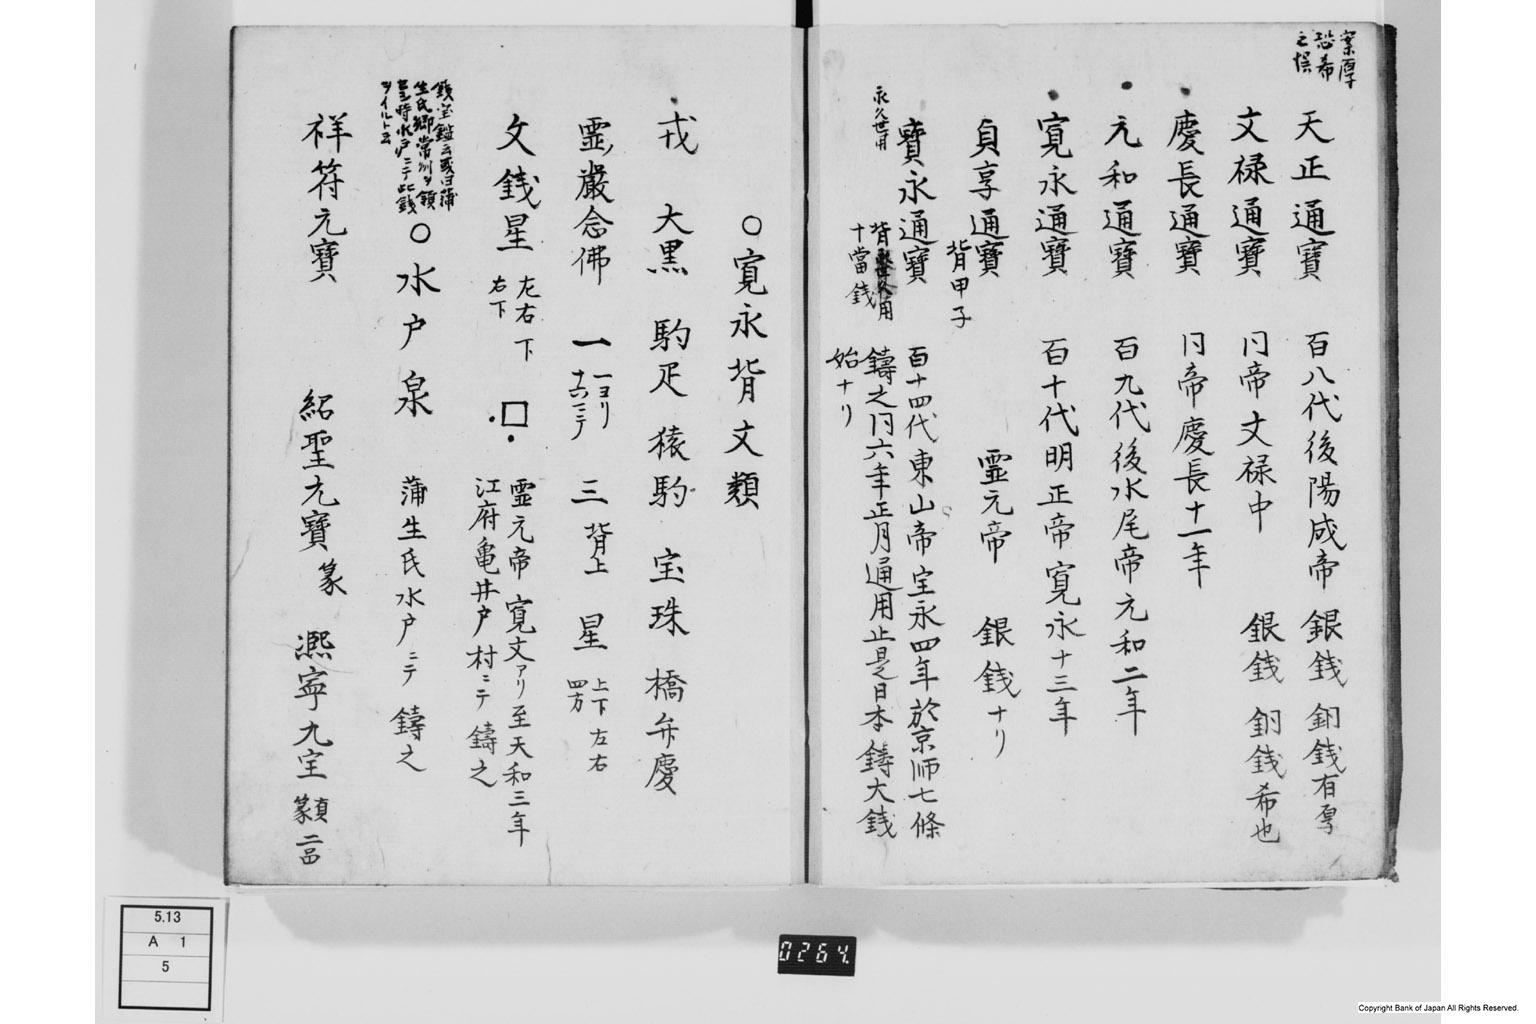 案厚
恐希
之誤
天正通寳 百八代後陽成帝 銀銭 銅銭有厚
文禄通寳 同帝文禄中 銀銭 銅銭希也
慶長通寳 同帝慶長十一年
元和通寳 百九代後水尾帝元和二年
寛永通寳 百十代明正帝寛永十三年
貞享通寳 背甲子 霊元帝 銀銭ナリ
永久世用
寳永通寳 背永久世用
十當銭
百十四代東山帝宝永四年於京師七條
鑄之同六年正月通用止是日本鑄大銭
始ナリ
○寛永背文類
戎 大黒 駒疋 猿駒 宝珠 橋弁慶
霊巌念佛 一 一ヨリ
十六ニテ 三 背上 星 上下左右
四方
文銭星 左右下
右下 □ 霊元帝寛文アリ至天和三年
江府亀井戸村ニテ鑄之
銭宝鑑云或曰蒲
生氏郷常州ヲ領
セシ時水戸ニテ此銭
ヲイルト云
○水戸泉 蒲生氏水戸ニテ鑄之
祥符元寳 紹聖元寳 篆 凞寧元宝 真篆 二品
5.13
A 1
5
0264.
Copyright Bank of Japan All Rights Reserved.